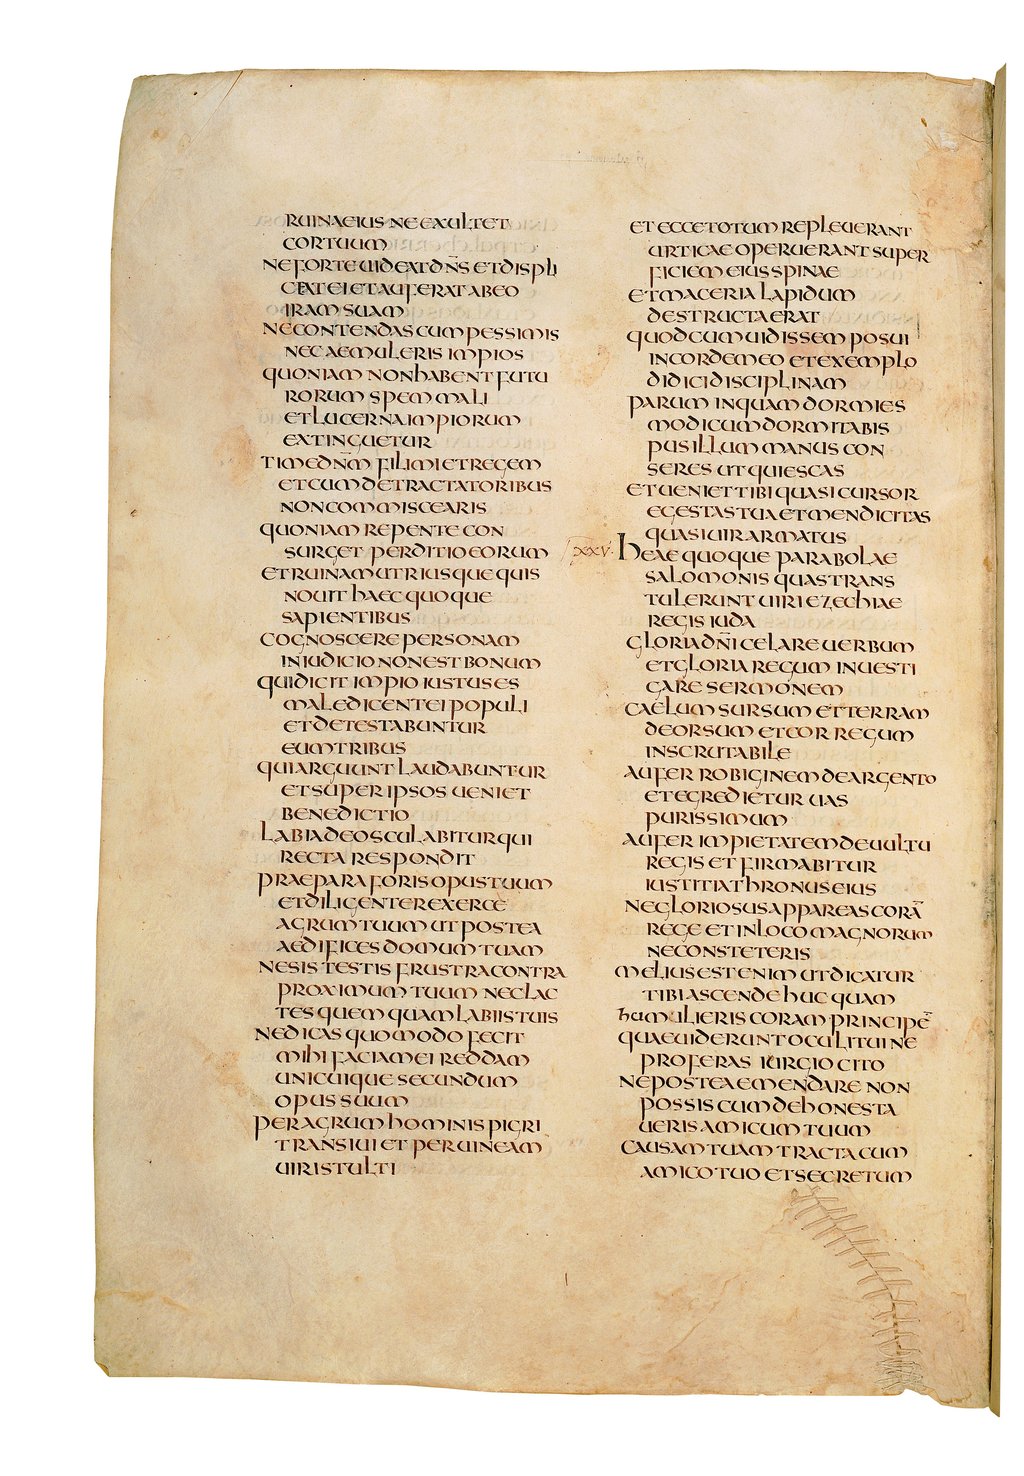 RUINAEIUS NE EXULTET
CORTUUM
NEFORTE UIDEAT DN̄S ET DISPLI
CEAT EI ET AUFERAT AB EO
IRAM SUAM
NE CONTENDAS CUM PESSIMIS
NEC AEMULERIS IMPIOS
QUONIAM NON HABENT FUTU
RORUM SPEM MALI
ET LUCERNA IMPIORUM
EXTINGUETUR
TIME DN̄M FILI MI ET REGEM
ET CUM DETRACTATORIBUS
NON COMMISCEARIS
QUONIAM REPENTE CON
SURGET PERDITIO EORUM
ET RUINAM UTRIUSQUE QUIS
NOUIT HAEC QUOQUE
SAPIENTIBUS
COGNOSCERE PERSONAM
IN IUDICIO NON EST BONUM
QUI DICIT IMPIO IUSTUS ES
MALEDICENT EI POPULI
ET DETESTABUNTUR
EUM TRIBUS
QUI ARGUUNT LAUDABUNTUR
ET SUPER IPSOS UENIET
BENEDICTIO
LABIA DEOSCULABITUR QUI
RECTA RESPONDIT
PRAEPARA FORIS OPUS TUUM
ET DILIGENTER EXERCE
AGRUM TUUM UT POSTEA
AEDIFICES DOMUM TUAM
NE SIS TESTIS FRUSTRA CONTRA
PROXIMUM TUUM NEC LAC
TES QUEMQUAM LABIIS TUIS
NE DICAS QUOMODO FECIT
MIHI FACIAM EI REDDAM
UNICUIQUE SECUNDUM
OPUS SUUM
PER AGRUM HOMINIS PIGRI
TRANSIUI ET PER UINEAM
UIRI STULTI
ET ECCE TOTUM REPLEUERANT
URTICAE OPERUERANT SUPER
FICIEM EIUS SPINAE
ET MACERIA LAPIDUM
DESTRUCTA ERAT
QUOD CUM UIDISSEM POSUI
IN CORDE MEO ET EXEMPLO
DIDICI DISCIPLINAM
PARUM INQUAM DORMIES
MODICUM DORMITABIS
PUSILLUM MANUS CON
SERES UT QUIESCAS
ET UENIET TIBI QUASI CURSOR
EGESTAS TUA ET MENDICITAS
QUASI UIR ARMATUS
XXV· HEAE QUOQUE PARABOLAE
SALOMONIS QUAS TRANS
TULERUNT UIRI EZECHIAE
REGIS IUDA
GLORIA DN̄I CELARE UERBUM
ET GLORIA REGUM INUESTI
GARE SERMONEM
CAELUM SURSUM ET TERRAM
DEORSUM ET COR REGUM
INSCRUTABILE
AUFER ROBIGINEM DE ARGENTO
ET EGREDIETUR UAS
PURISSIMUM
AUFER IMPIETATEM DE UULTU
REGIS ET FIRMABITUR
IUSTITIA THRONUS EIUS
NE GLORIOSUS APPAREAS CORĀ
REGE ET IN LOCO MAGNORUM
NE CONSTETERIS
MELIUS EST ENIM UT DICATUR
TIBI ASCENDE HUC QUAM
HUMULIERIS CORAM PRINCIPĒ
QUAE UIDERUNT OCULI TUI NE
PROFERAS IURGIO CITO
NE POSTEA EMENDARE NON
POSSIS CUM DEHONESTA
UERIS AMICUM TUUM
CAUSAM TUAM TRACTA CUM
AMICO TUO ET SECRETUM